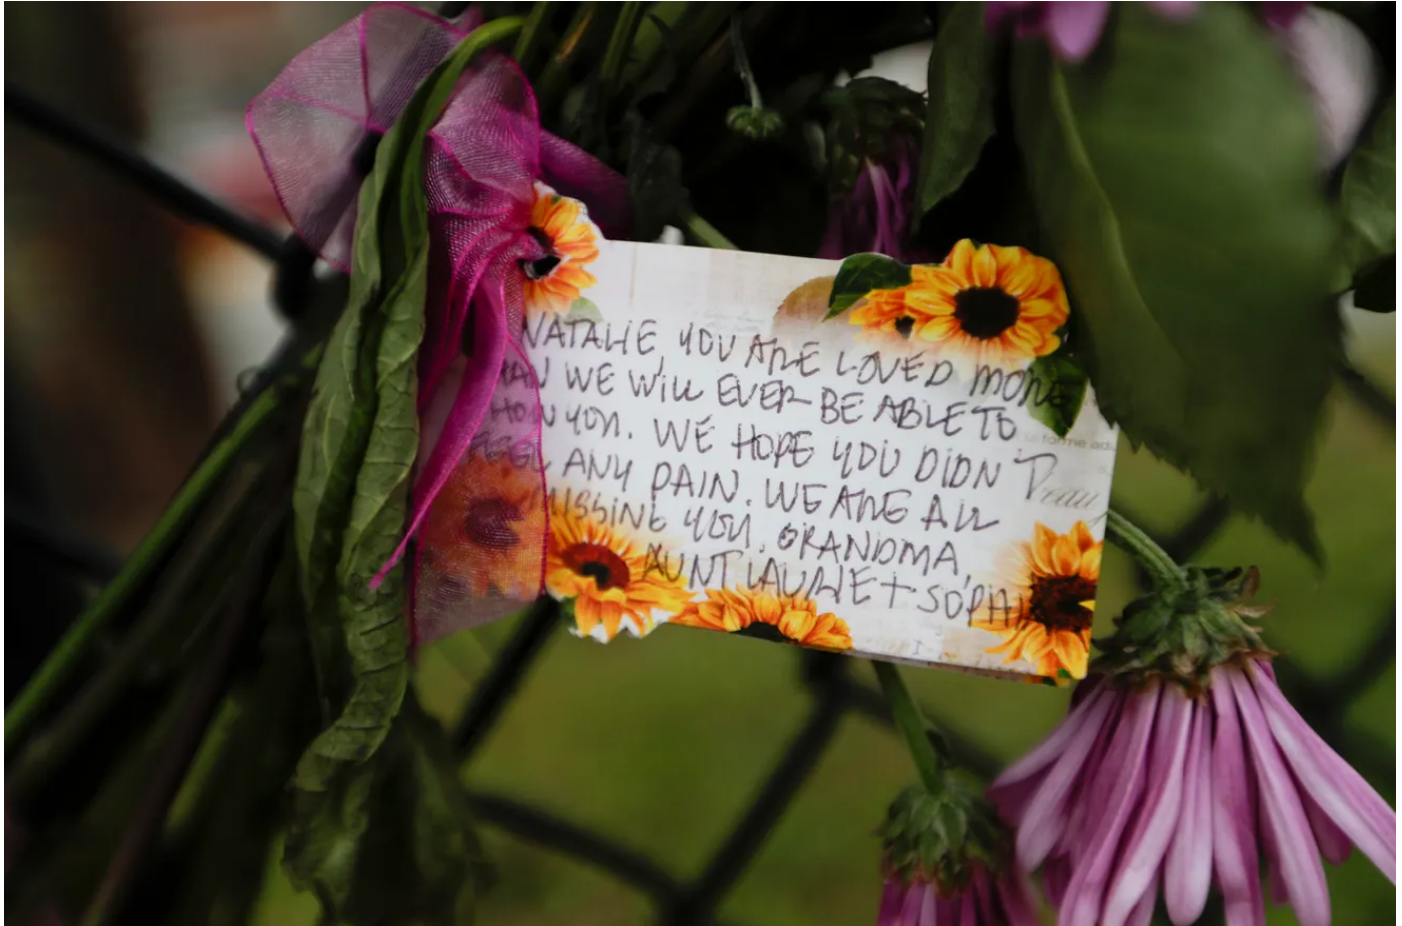 NATALIE, YOU ARE LOVED MORE
THAN WE WILL EVER BE ABLE TO
SHOW YOU. WE HOPE YOU DIDN'T
FEEL ANY PAIN. WE ARE ALL
MISSING YOU. GRANDMA,
AUNT LAURIE + SOPHIE
forme ad